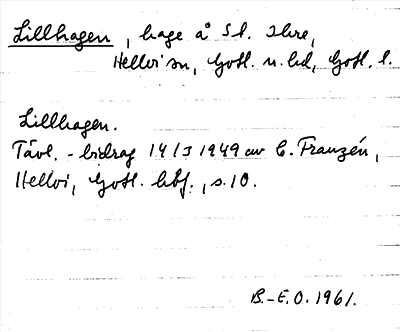 Lillhagen, hage å St. Ihre,
Hellvi sn, Gotl. n. hd, Gotl. l.
Lillhagen.
Tävl.-bidrag 14/3 1949 av C. Franzén,
Hellvi, Gotl. hbf., s. 10.
B.-E.O. 1961.